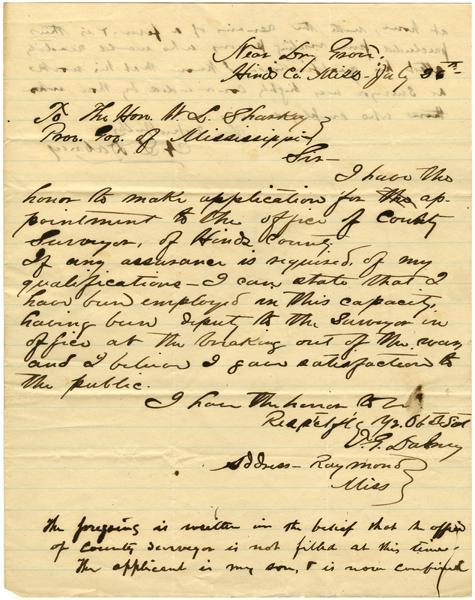 Near Dry Grove
Hinds Co. Miss. July
To The Hon. W. L. Sharkey
Prov. Gov. of Mississippi
Sir—
I have the
honor to make application for the ap-
pointment to the office of County
Surveyor, of Hinds County.
If any assurance is required, of my
qualifications—I can state that I
have been employed in this capacity,
having been deputy to the Surveyor in
office at the breaking out of the war,
and I believe I gave satisfaction to
the public.
I have the honor to be
Respectfly Yr. Obt. Svt
Dabney
Address—Raymond
Miss
The foregoing is written in the belief that the office
of County Surveyor is not filled at this time—
The applicant is my son, & is now confined